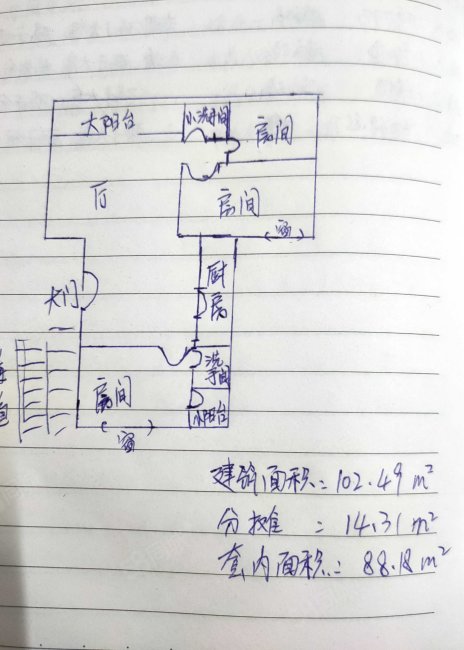 大阳台
小洗手间
房间
厅
房间
(窗)
厨房
大门
洗手间
房间
小阳台
(窗)
建筑面积:102.49m²
分摊:14.31m²
套内面积:88.18m²